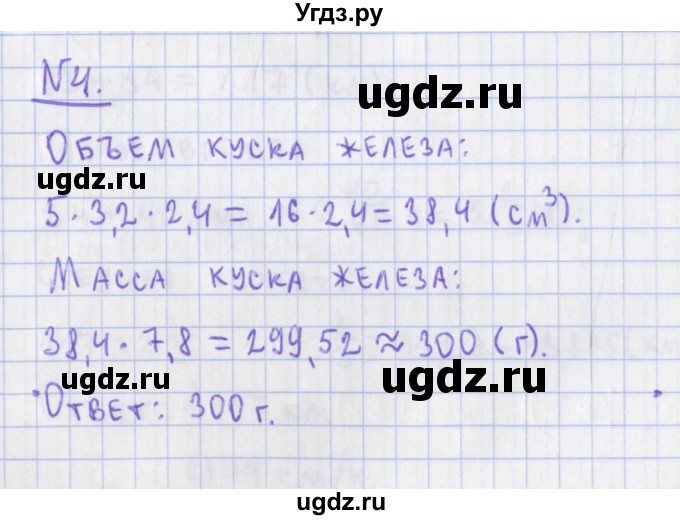 Угдз.ру
№4.
ugdz.ru
Объем куска железа:
ugdz.ru
5 · 3,2 · 2,4 = 16 · 2,4 = 38,4 (см³).
Масса куска железа:
38,4 · 7,8 = 299,52 ≈ 300 (г).
ugdz.ru
ugdz.ru
Ответ: 300 г.
ugdz.ru